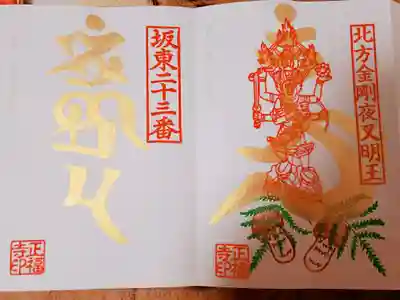 北方金剛夜叉明王
正福
寺印
坂東二十三番
正福
寺印